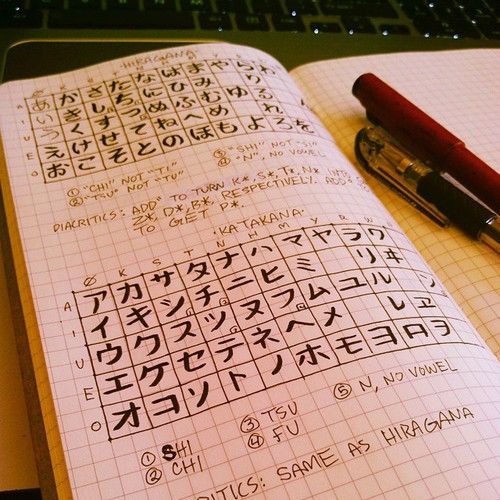 HIRAGANA
A あ か さ た な は ま や ら わ
I い き し ち に ひ み り
U う く す つ ぬ ふ む ゆ る
E え け せ て ね へ め れ
O お こ そ と の ほ も よ ろ を
① "CHI" NOT "TI" "SHI" NOT "SI"
② "TSU" NOT "TU" "N", NO VOWEL
DIACRITICS: ADD " TO TURN K*, S*, T*, INTO
Z*, D*, B*, RESPECTIVELY. ADD
TO GET P*.
·KATAKANA·
Ø K S T N H M Y R W
A ア カ サ タ ナ ハ マ ヤ ラ ワ
I イ キ シ チ ニ ヒ ミ リ ヰ
U ウ ク ス ツ ヌ フ ム ユ ル ン
E エ ケ セ テ ネ ヘ メ レ ヱ
O オ コ ソ ト ノ ホ モ ヨ ロ ヲ
① SHI ③ TSU ⑤ N, NO VOWEL
② CHI ④ FU
CRITICS: SAME AS HIRAGANA